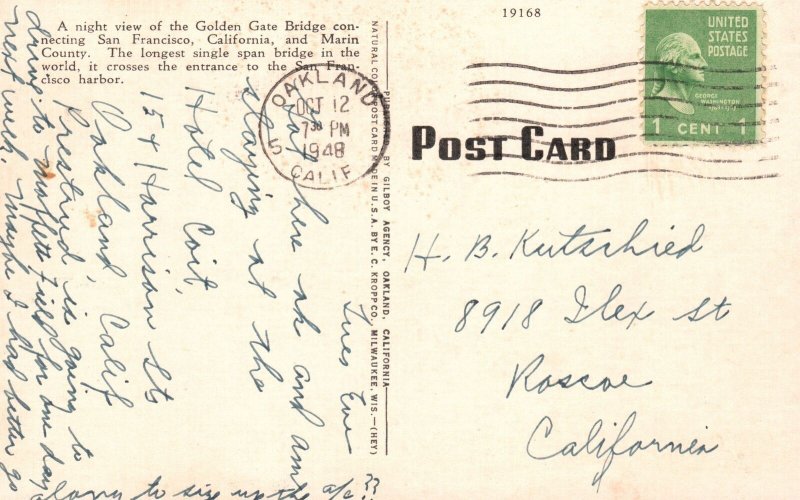 19168
A night view of the Golden Gate Bridge con-
necting San Francisco, California, and Marin
County. The longest single span bridge in the
world, it crosses the entrance to the San Fran-
cisco harbor.
PUBLISHED BY GILBOY AGENCY, OAKLAND, CALIFORNIA
NATURAL COLOR POST CARD MADE IN U.S.A. BY E. C. KROPP CO., MILWAUKEE, WIS.—(HEY)
OAKLAND
OCT 12
7 30 PM
1948
5 CALIF
UNITED
STATES
POSTAGE
GEORGE
WASHINGTON
1 CENT 1
POST CARD
H. B. Kutschied
8918 Ilex St
Roscoe
California
Tues Eve
here ok and am
staying at the
Hotel Coit,
15 & Harrison Sts
Oakland, Calif
is going to
going to Moffett Field for one day
next week. Maybe I had better go
along to size up the a/c??